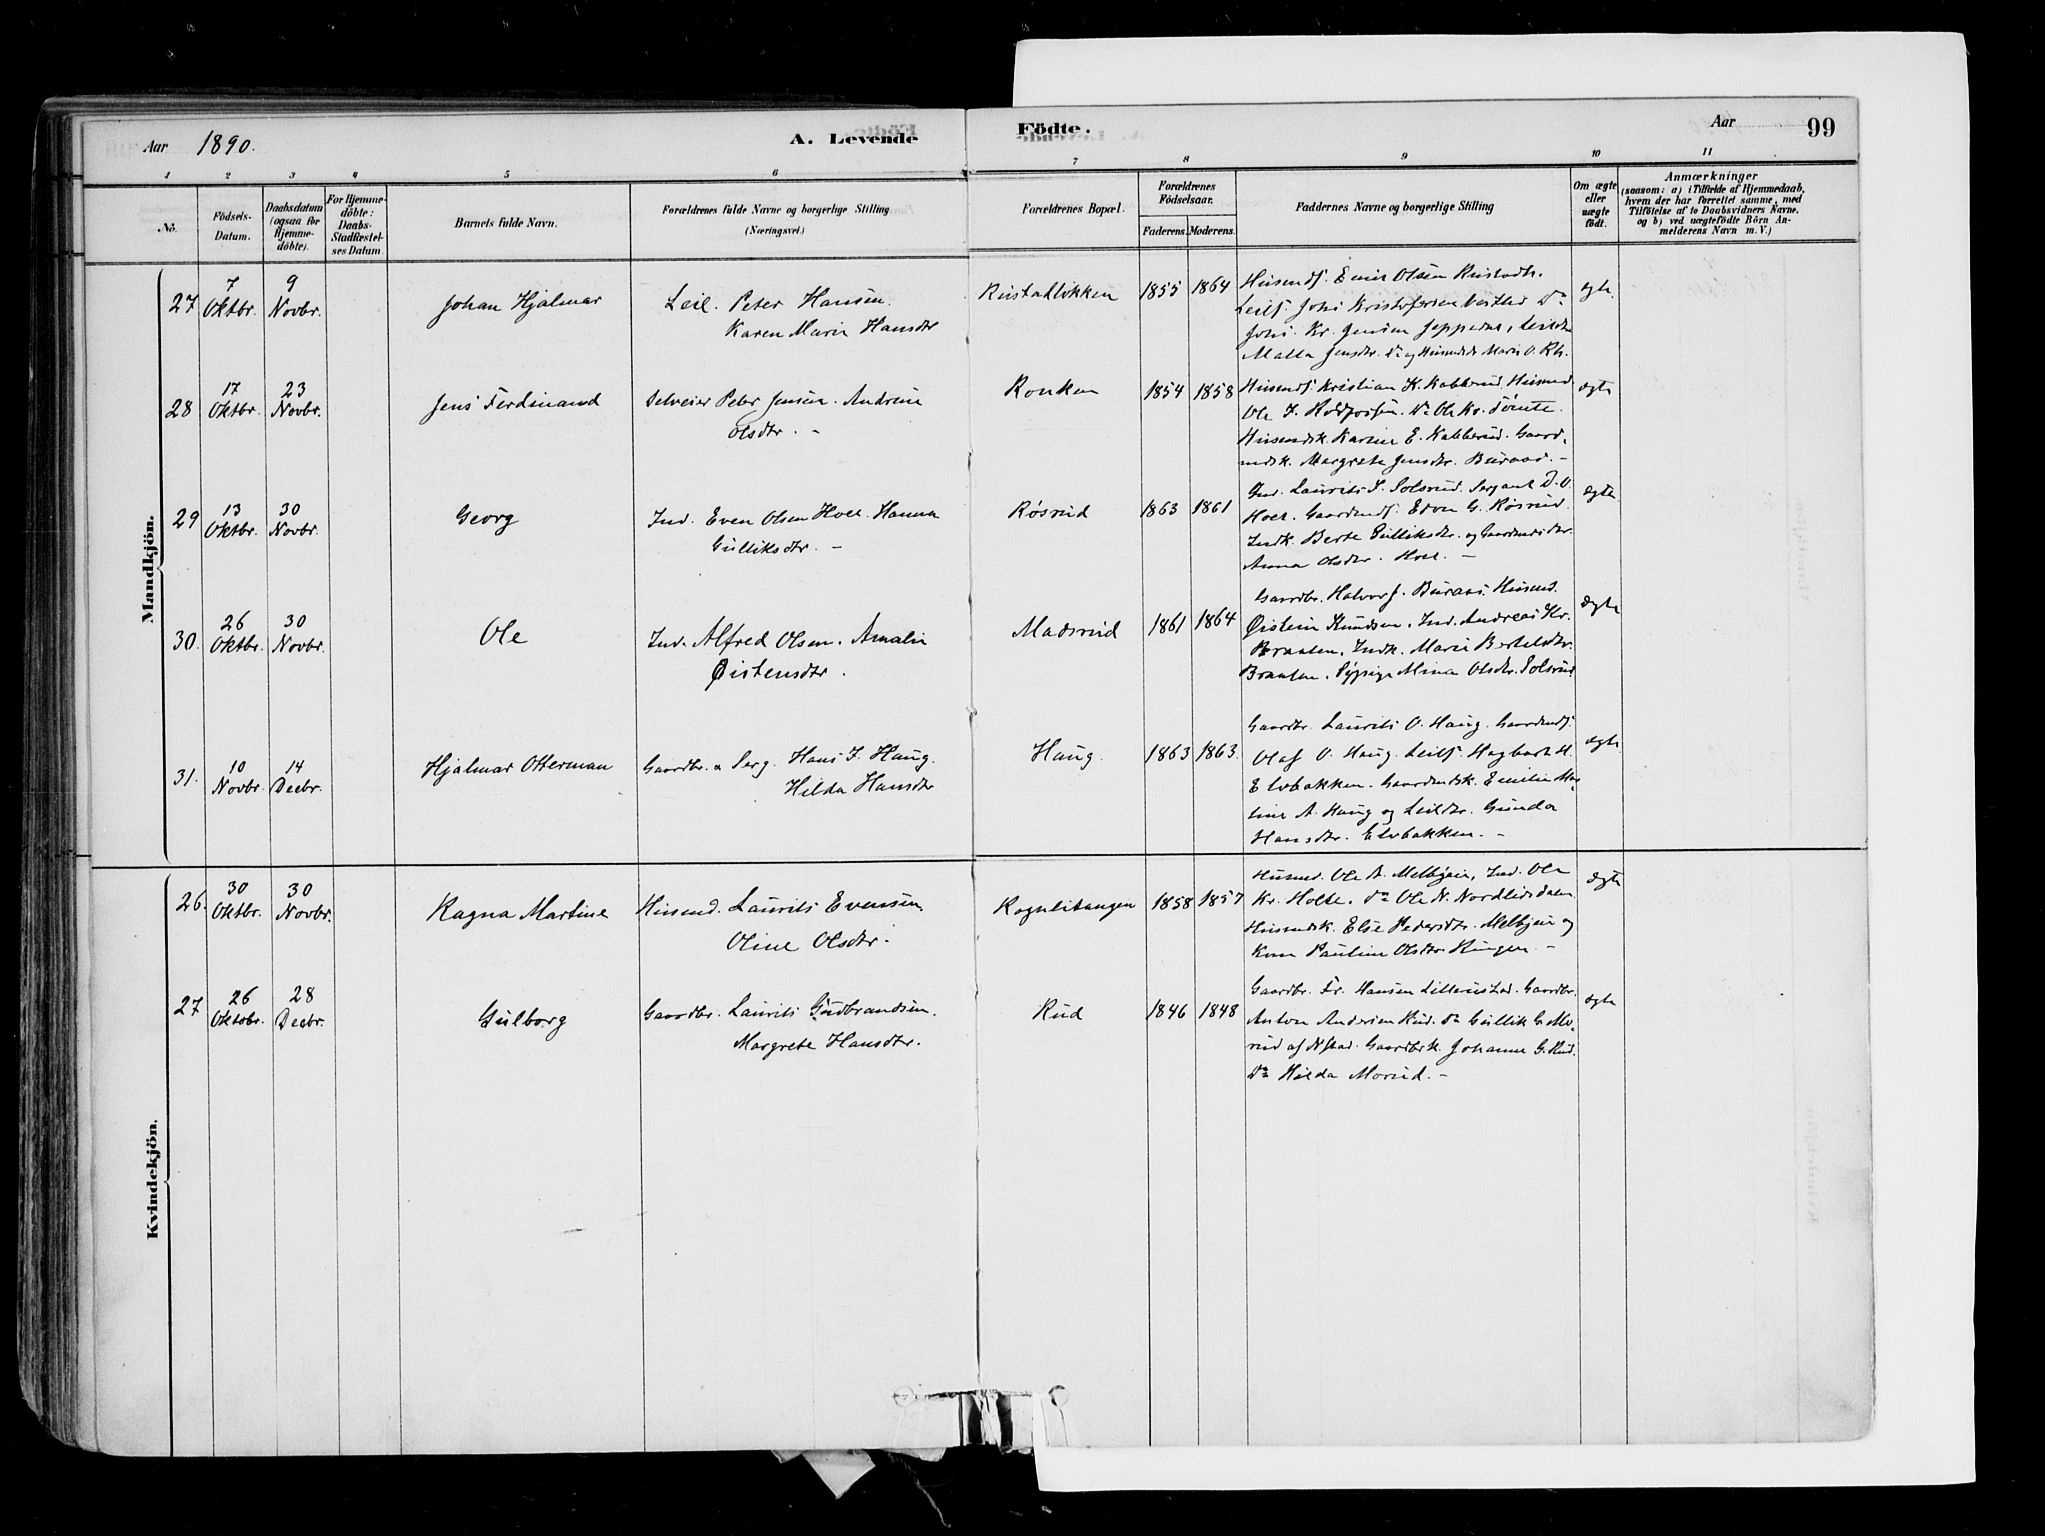 Aar 1890.
A. Levende
Födte.
Aar
99
1 2 3 4 5 6 7 8 9 10 11
No.
Födsels-
Datum.
Daabsdatum
(ogsaa for
Hjemme-
döbte).
For Hjemme-
döbte:
Daabs-
Stadfæstel-
ses Datum.
Barnets fulde Navn.
Forældrenes fulde Navne og borgerlige Stilling
(Næringsvei.)
Forældrenes Bopæl.
Forældrenes
Födselsaar.
Faderens. Moderens.
Faddernes Navne og borgerlige Stilling
Om ægte
eller
uægte
födt.
Anmærkninger
(saasom: a) i Tilfælde af Hjemmedaab,
hvem der har forrettet samme, med
Tilföielse af to Daabsvidners Navne,
og b) ved uægtefödte Börn An-
melderens Navn m. V.)
Mandkjön.
27 7 Oktbr. 9 Novbr.
Johan Hjalmar
Leil. Peter Hansen.
Karen Marie Hansdtr
Rustadlökken
1855 1864
Husmdf. Emil Olsen Rustadh.
Leilf. Johs Kristofersen
Johs. Kr. Jensen
Jensdtr. Do og Marie O. Rh.
egte.
28 17 Oktbr. 23 Novbr.
Jens Ferdinand
Selveier Peter Jensen. Andrine
Olsdtr. -
Ronken
1854 1858
Husmdf. Kristian K. Kabberud. Husmd.
Ole J. Do Ole Kr. Tömte.
Husmdsk. Karine E. Kabberud. Gaard-
mdsk. Margrete Jensdtr. Buraas. -
ægte
29 13 Oktbr. 30 Novbr.
Georg
Ind. Even Olsen Hoel. Hanna
Gulliksdtr. -
Røsrud
1863 1861
Ind. Laurits S. Solsrud. Sergant D. O.
Hoel. Gaardmdf. Even G. Røsrud.
Indk. Berte Gulliksdtr. og
Anna Olsdtr. Hoel. -
ægte
30. 26 Oktbr. 30 Novbr.
Ole
Ind. Alfred Olsen. Amalie
Øistensdtr.
Madsrud
1861 1864
Gaardbr. Halvor J. Buraas. Husmd.
Øistein Knudsen. Ind. Andreas Kr.
Braaten. Indk. Marie Bertelsdtr.
Braaten. Pige Mina Olsdtr. Solsrud
ægte
31. 10 Novbr. 14 Decbr.
Hjalmar Otterman
Gaardbr. & Serg. Hans J. Haug.
Hilda Hansdtr
Haug.
1863 1863.
Gaardbr. Laurits O. Haug. Gaardmdf.
Olaf O. Haug. Leilf. Hagbart H.
Elvbakken. Gaardmdsk. Emilie Ma-
line A. Haug og Leildtr. Gunda
Hansdtr. Elvbakken. -
ægte
Kvindekjön.
26. 30 Oktbr. 30 Novbr.
Ragna Martine
Husmd. Laurits Evensen.
Oline Olsdtr.
Rognlitangen
1858 1857
Husmd. Ole A. Melbyeie, Ind. Ole
Kr. Holte. Do Ole N. Nordlidsdalen
Husmdsk. Elie Pedersdtr. Melbyeie og
Kone Pauline Olsdtr Hungen. -
ægte
27 26 Oktobr. 28 Decbr.
Gulborg
Gaardbr. Laurits Gudbrandsen.
Margrete Hansdtr.
Rud
1846 1848
Gaardbr. Fr. Hansen Lillerustad. Gaardbr.
Anton Andersen Rud. Do Gullik G. Mo-
rud af N. Gaardbrk. Johanne G. Rud.
Do Hilda Morud. -
ægte